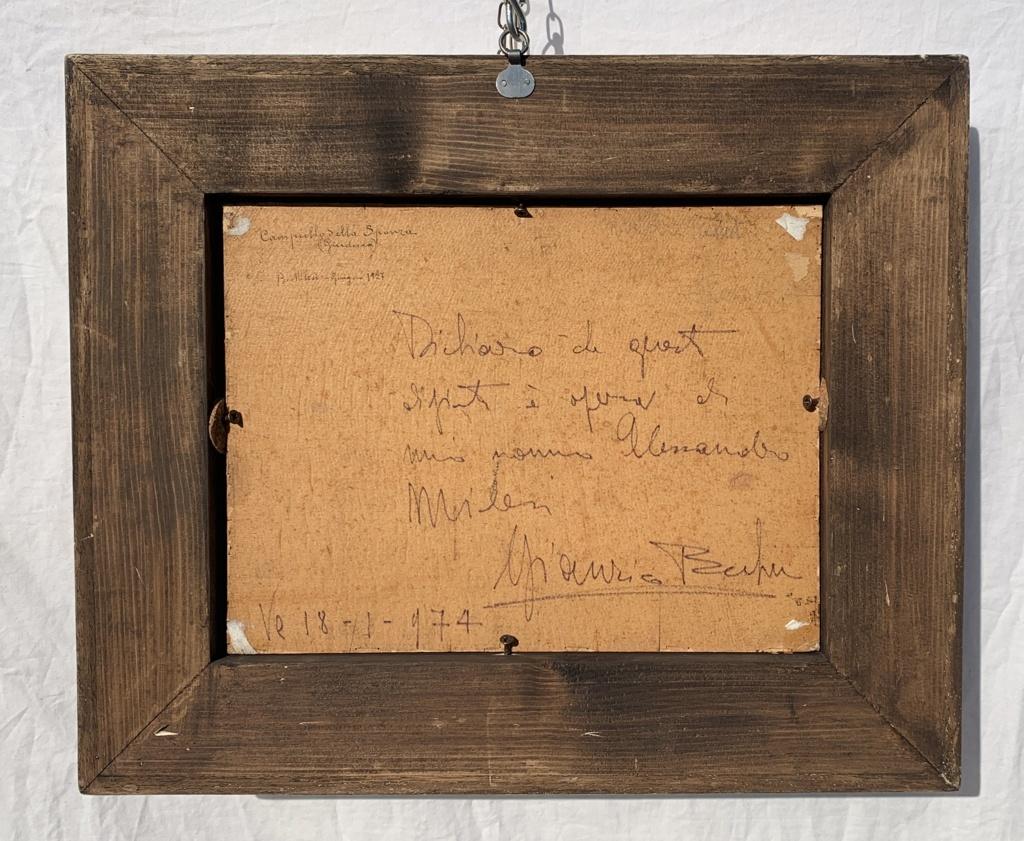 Campiello della
(Giudecca)
Giugno 1927
Dichiaro che questo
dipinto è opera di
mio nonno Alessandro
Milesi
Ve 18-1-974